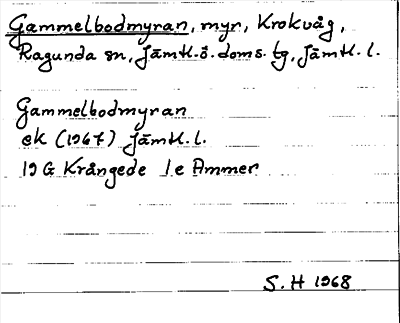 Gammelbodmyran, myr, Krokvåg,
Ragunda sn, Jämtl. ö. doms. tg, Jämtl. l.
Gammelbodmyran
ek (1967) Jämtl. l.
19 G Krångede 1e Ammer
S. H 1968